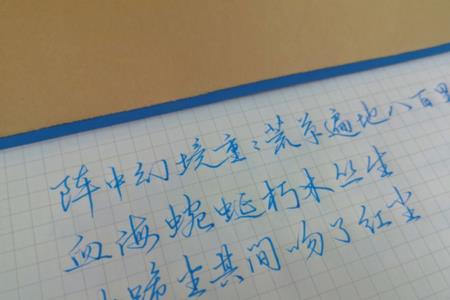 阵中幻境重重荒草遍地八百里
血海蜿蜒朽木丛生
坐其间吻了红尘